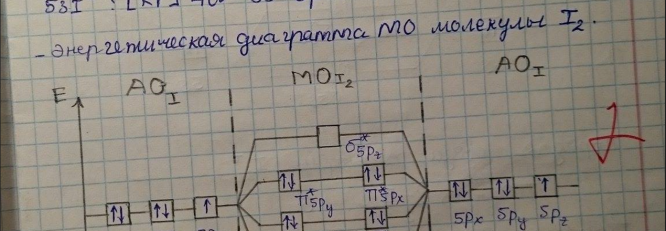 53I : [Kr]
- энергетическая диаграмма МО молекулы I₂.
E AO_I MO_I₂ AO_I
σ*5pz
π*5py π*5px
5px 5py 5pz